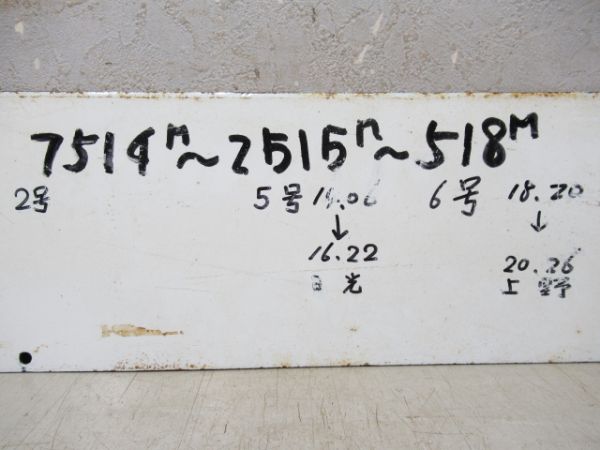 7514M～2515M～518M
2号 5号 14.06 6号 18.20
↓ ↓
16.22 20.26
日光 上野